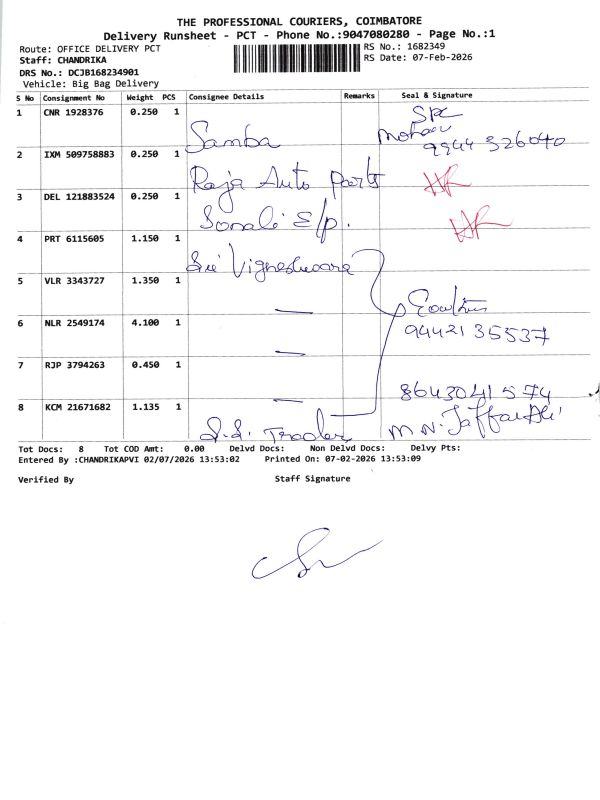 THE PROFESSIONAL COURIERS, COIMBATORE
Delivery Runsheet - PCT - Phone No.:9047080280 - Page No.:1
Route: OFFICE DELIVERY PCT
Staff: CHANDRIKA
DRS No.: DCJB168234901
Vehicle: Big Bag Delivery
RS No.: 1682349
RS Date: 07-Feb-2026
S No Consignment No Weight PCS Consignee Details Remarks Seal & Signature
1 CNR 1928376 0.250 1 Samba
Mohan
9944 326040
2 IXM 509758883 0.250 1 Raja Auto Parts
3 DEL 121883524 0.250 1 Sonali E/p.
4 PRT 6115605 1.150 1 Sri Vigneshwara
5 VLR 3343727 1.350 1 —
94421 35537
6 NLR 2549174 4.100 1 —
7 RJP 3794263 0.450 1 —
8643041574
8 KCM 21671682 1.135 1 S.S. Trader M.N. Jaffar Ali
Tot Docs: 8 Tot COD Amt: 0.00 Delvd Docs: Non Delvd Docs: Delvy Pts:
Entered By :CHANDRIKAPVI 02/07/2026 13:53:02 Printed On: 07-02-2026 13:53:09
Verified By Staff Signature